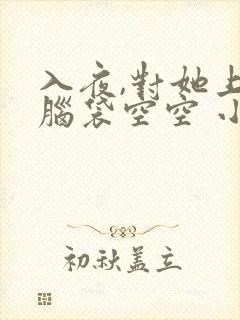 入夜,對她上
腦袋空空 小
初秋盖立